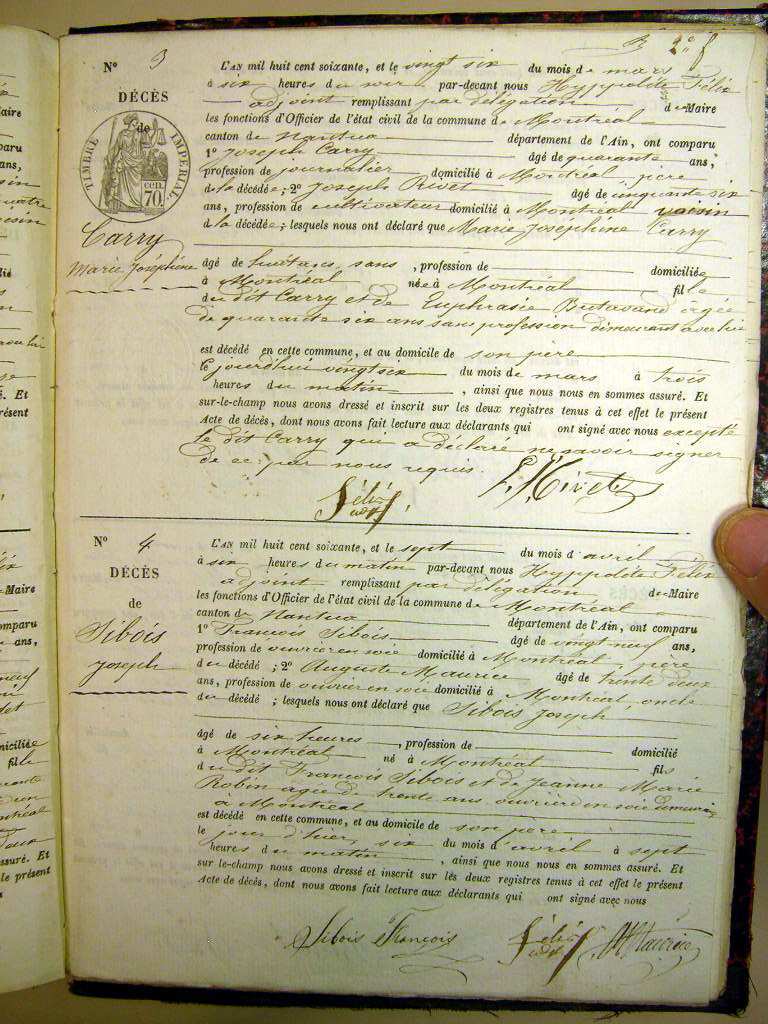 2e f
N° 3
DÉCÈS
de
TIMBRE IMPÉRIAL
CEN. 70.
Carry
Marie Joséphine
L'AN mil huit cent soixante, et le vingt six du mois de mars
à six heures du soir par-devant nous Hyppolite Félix
adjoint remplissant par délégation de Maire
les fonctions d'Officier de l'état civil de la commune de Montréal
canton de Nantua département de l'Ain, ont comparu
1° Joseph Carry âgé de quarante ans,
profession de journalier domicilié à Montréal père
de la décédée ; 2° Joseph Rivet âgé de cinquante six
ans, profession de cultivateur domicilié à Montréal voisin
de la décédée ; lesquels nous ont déclaré que Marie Joséphine Carry
âgé de huit ans , profession de domiciliée
à Montréal née à Montréal fille
du dit Carry et de Euphrasie Butavand âgée
de quarante six ans sans profession demeurant avec lui
est décédé en cette commune, et au domicile de son père
le jourd'hui vingt six du mois de mars à trois
heures du matin , ainsi que nous nous en sommes assuré. Et
sur-le-champ nous avons dressé et inscrit sur les deux registres tenus à cet effet le présent
Acte de décès, dont nous avons fait lecture aux déclarants qui ont signé avec nous excepté
le dit Carry qui a déclaré ne savoir signer
de ce par nous requis.
Félix adj. Rivet
N° 4
DÉCÈS
de
Sibois
Joseph
L'AN mil huit cent soixante, et le sept du mois d'avril
à six heures du matin par-devant nous Hyppolite Félix
adjoint remplissant par délégation de Maire
les fonctions d'Officier de l'état civil de la commune de Montréal
canton de Nantua département de l'Ain, ont comparu
1° François Sibois âgé de vingt neuf ans,
profession de ouvrier en soie domicilié à Montréal, père
du décédé ; 2° Auguste Maurice âgé de trente deux
ans, profession de ouvrier en soie domicilié à Montréal, oncle
du décédé ; lesquels nous ont déclaré que Sibois Joseph
âgé de six heures , profession de domicilié
à Montréal né à Montréal fils
du dit François Sibois et de Jeanne Marie
Robin agée de trente ans ouvrière en soie demeurant
à Montréal
est décédé en cette commune, et au domicile de son père
le jour d'hier, six du mois d'avril à sept
heures du matin , ainsi que nous nous en sommes assuré. Et
sur le-champ nous avons dressé et inscrit sur les deux registres tenus à cet effet le présent
Acte de décès, dont nous avons fait lecture aux déclarants qui ont signé avec nous
Sibois François Félix adj. Maurice